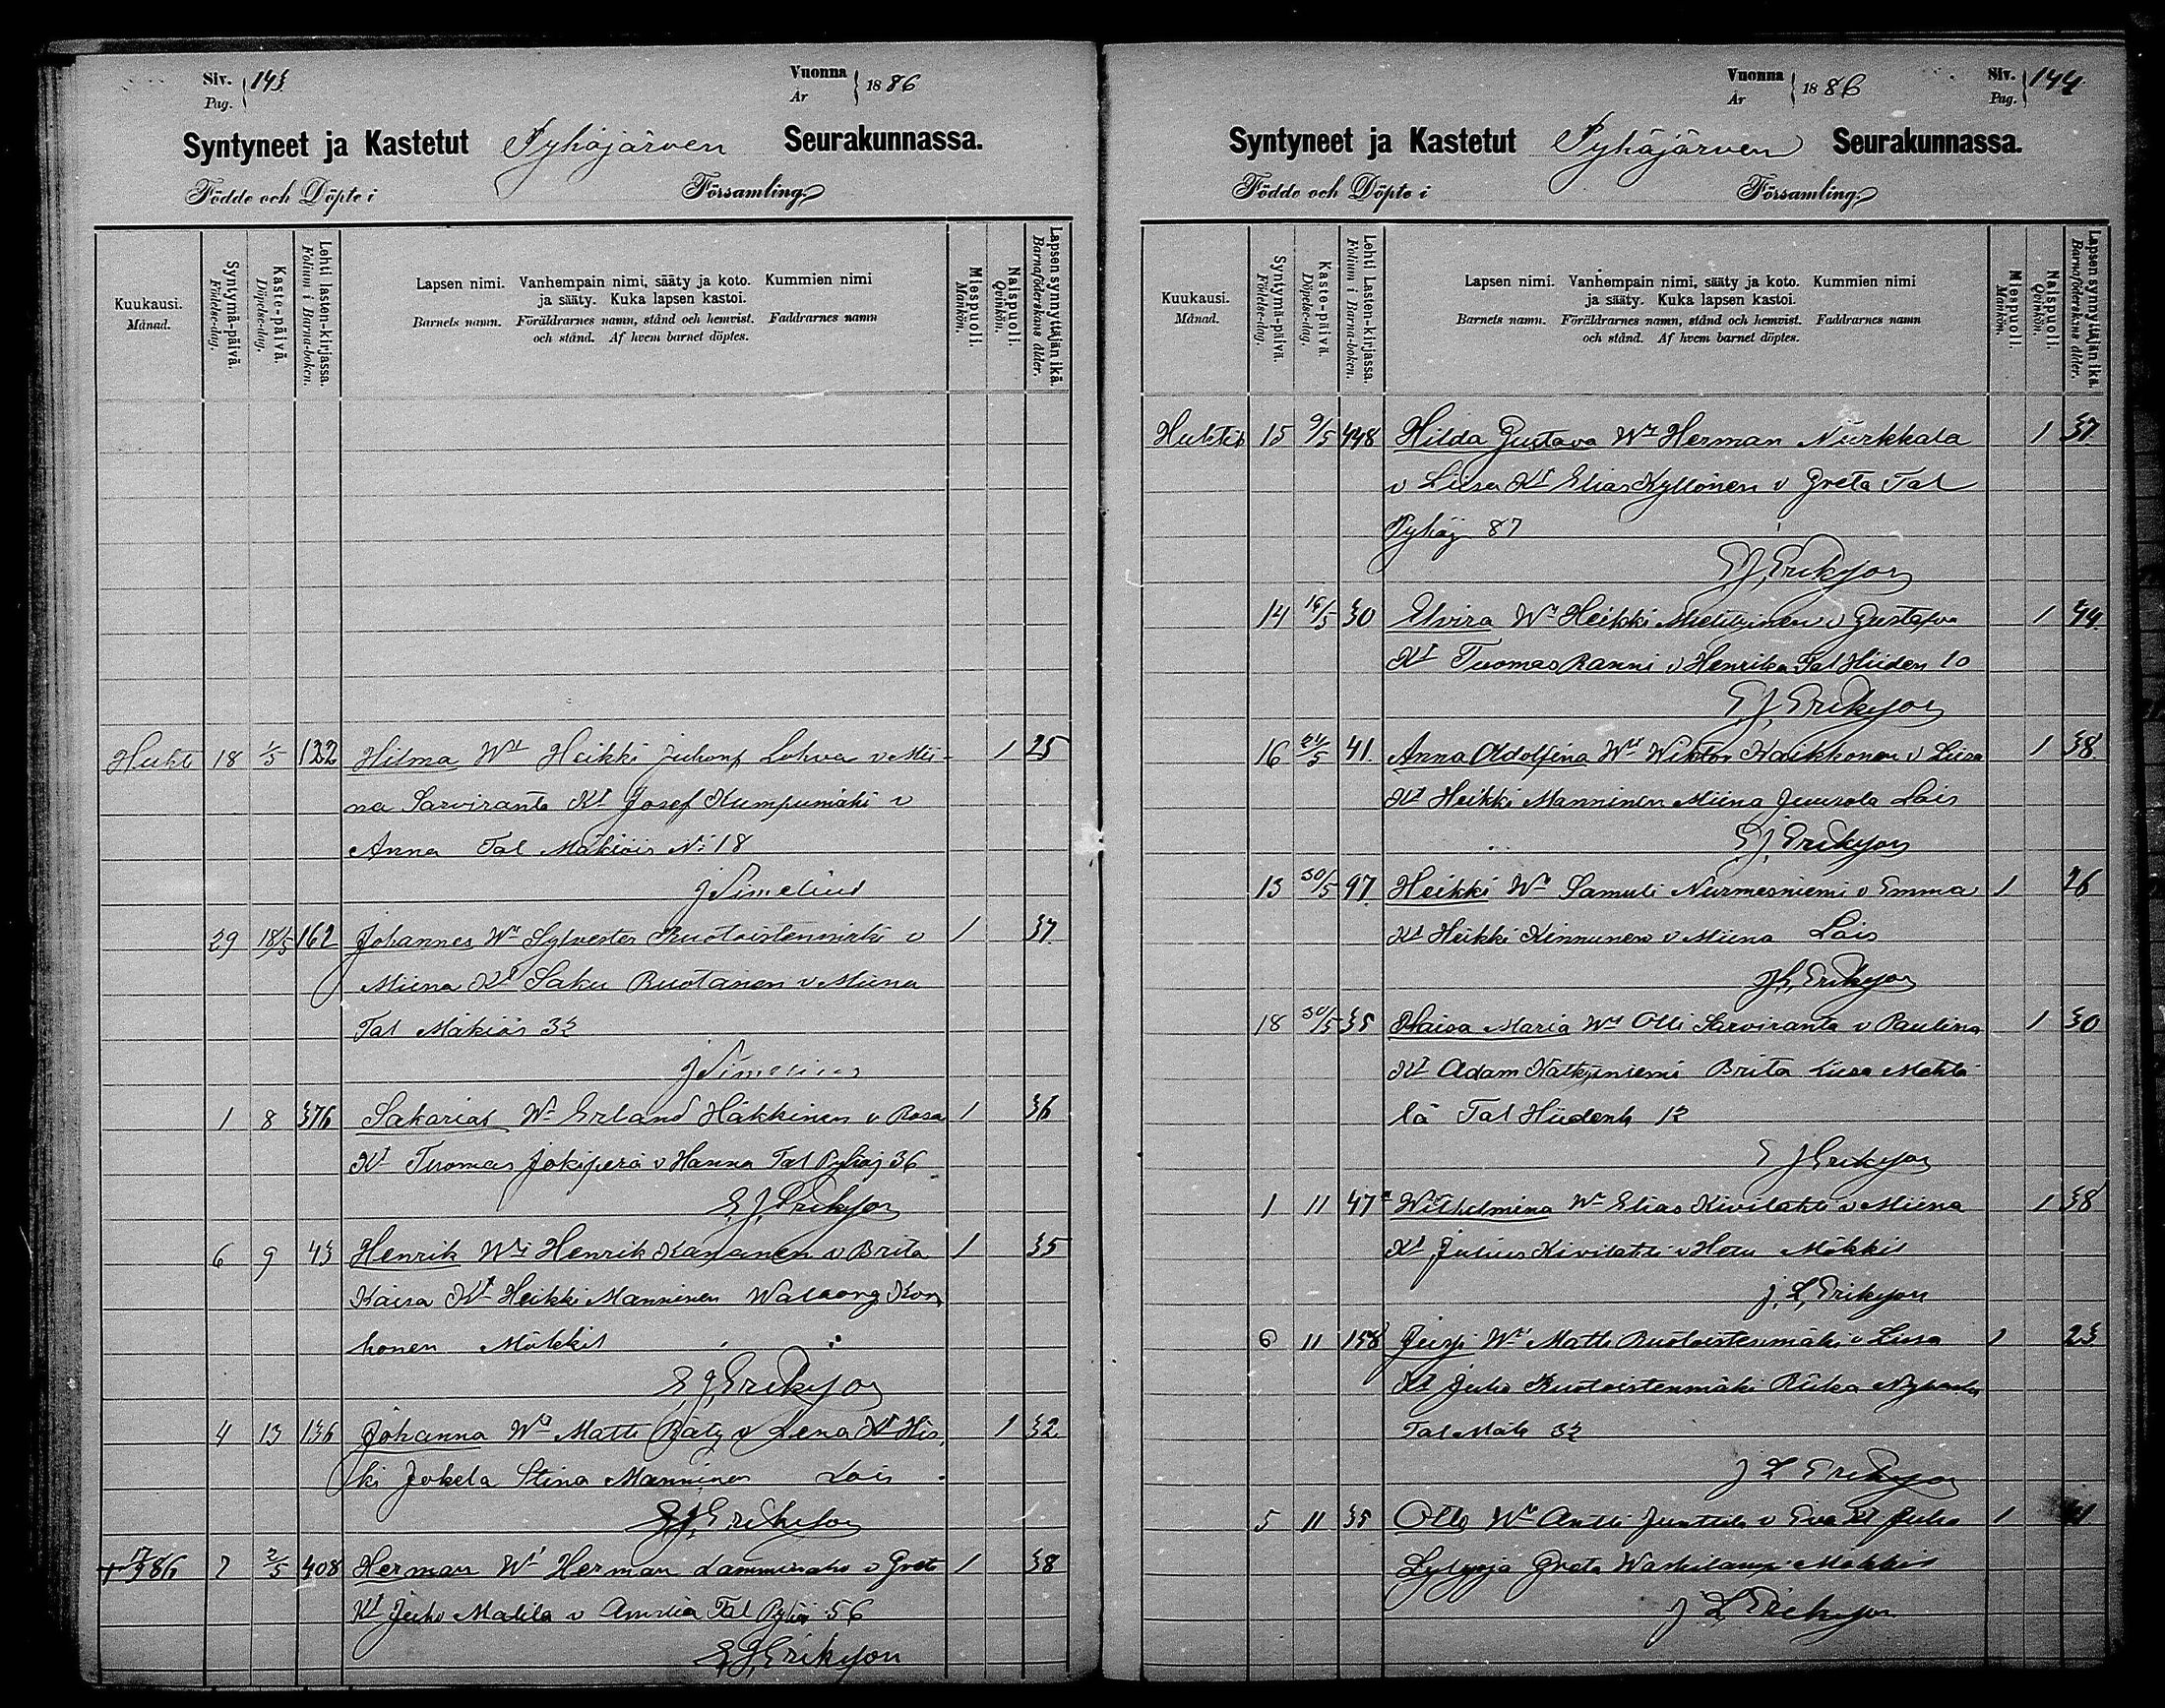 Siv. Pag. 143
Vuonna År 1886
Syntyneet ja Kastetut Pyhäjärven Seurakunnassa.
Födde och Döpte i Församling.
Kuukausi. Månad.
Syntymä-päivä. Födelse-dag.
Kaste-päivä. Döpelse-dag.
Lehti lasten-kirjassa. Folium i Barna-boken.
Lapsen nimi. Vanhempain nimi, sääty ja koto. Kummien nimi
ja sääty. Kuka lapsen kastoi.
Barnets namn. Föräldrarnes namn, stånd och hemvist. Faddrarnes namn
och stånd. Af hvem barnet döptes.
Miespuoli. Mankön.
Naispuoli. Qvinkön.
Lapsen synnyttäjän ikä. Barnaföderskans ålder.
Huht 18 1/5 122 Hilma Wt Heikki Juhonp Lohva v Mii- 1 25
na Sarviranta Kt Josef Kumpumäki v
Anna Tal Mäkiäis No 18
J Simelius
29 18/5 162 Johannes Wt Sylvester v 1 37
Miina Kt Saku Ruotanen v Miina
Tal Mäkiäs 32
J Simelius
1 8 376 Sakarias Wt Erland Häkkinen v Rosa 1 36
Kt Tuomas Jokiperä v Hanna Tal Pyhäj 36
E. J. Erikson
6 9 43 Henrik Wt Henrik Kananen v Brita 1 35
Kaisa Kt Heikki Manninen Walborg Kon
honen Mökkil
E J Erikson
4 13 136 Johanna Wt Matti Räty v Lena Kt His 1 32
ki Jokela Stina Manninen Lois
E J Erikson
86 2 2/5 408 Herman Wt Herman Lamminaho v Greta 1 38
Kt Juho Matila v Amalia Tal Pyhäj 56
E J Erikson
Vuonna År 1886
Siv. Pag. 144
Syntyneet ja Kastetut Pyhäjärven Seurakunnassa.
Födde och Döpte i Församling.
Kuukausi. Månad.
Syntymä-päivä. Födelse-dag.
Kaste-päivä. Döpelse-dag.
Lehti Lasten-kirjassa. Folium i Barna-boken.
Lapsen nimi. Vanhempain nimi, sääty ja koto. Kummien nimi
ja sääty. Kuka lapsen kastoi.
Barnets namn. Föräldrarnes namn, stånd och hemvist. Faddrarnes namn
och stånd. Af hvem barnet döptes.
Miespuoli. Mankön.
Naispuoli. Qvinkön.
Lapsen synnyttäjän ikä. Barnaföderskans ålder.
Huhtik 15 9/5 448 Hilda Gustava Wt Herman Nurkkala 1 37
v Liisa Kt Elias Kyllönen v Greta Tal
Pyhäj 87
E J Erikson
14 16/5 30 Elvira Wt Heikki v Gustafva 1 44
Kt Tuomas Ranni v Henrika Tal Hiiden 10
E. J. Erikson
16 24/5 41 Anna Adolfina Wt Wiktor Kaikkonen v Liisa 1 38
Kt Heikki Manninen Miina Juusola Lois
E. J. Erikson
13 30/5 97 Heikki Wt Samuli Nurmesniemi v Emma 1 26
Kt Heikki Kinnunen v Miina Lois
J L Erikson
18 30/5 35 Kaisa Maria Wt Olli Sarviranta v Paulina 1 30
Kt Adam Kätkytniemi Brita Liisa Mehtä
lä Tal Hiidenk 12
E J Erikson
1 11 47 Wilhelmina Wt Elias Kivilahti v Miina 1 38
Kt Julius Kivilahti v Mökkil
J. L. Erikson
6 11 158 Jurji Wt Matti Ruotoistenmäki v Liisa 1 23
Kt Juho Ruotoistenmäki Riika
Tal Mäk 32
J L Erikson
5 11 35 Olli Wt Antti Junttila v Eva Kt Juho 1 41
Greta Waskilampi Mökkil
J L Erikson